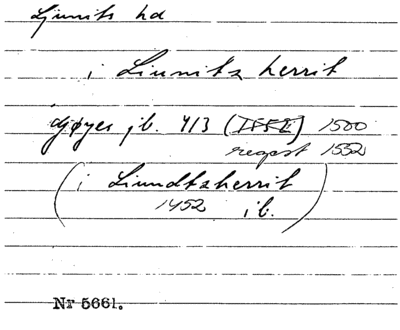 Ljunits hd
i Liunitz herrit
djøyes jb. 413 (1552) 1500
regest 1552
(i Liundtzherrit
1452 ib.)
Nr 5661.